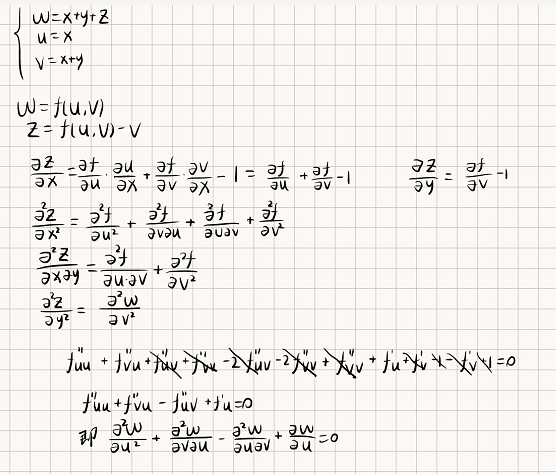 w=x+y+z
u=x
v=x+y
w=f(u,v)
z=f(u,v)-v
∂z/∂x=∂f/∂u·∂u/∂x+∂f/∂v·∂v/∂x-1=∂f/∂u+∂f/∂v-1 ∂z/∂y=∂f/∂v-1
∂²z/∂x²=∂²f/∂u²+∂²f/∂v∂u+∂²f/∂u∂v+∂²f/∂v²
∂²z/∂x∂y=∂²f/∂u∂v+∂²f/∂v²
∂²z/∂y²=∂²w/∂v²
f''uu+f''vu+f''uv+f''vv-2f''uv-2f''vv+f''vv+f'u+f'v-1-f'v+1=0
f''uu+f''vu-f''uv+f'u=0
即 ∂²w/∂u²+∂²w/∂v∂u-∂²w/∂u∂v+∂w/∂u=0